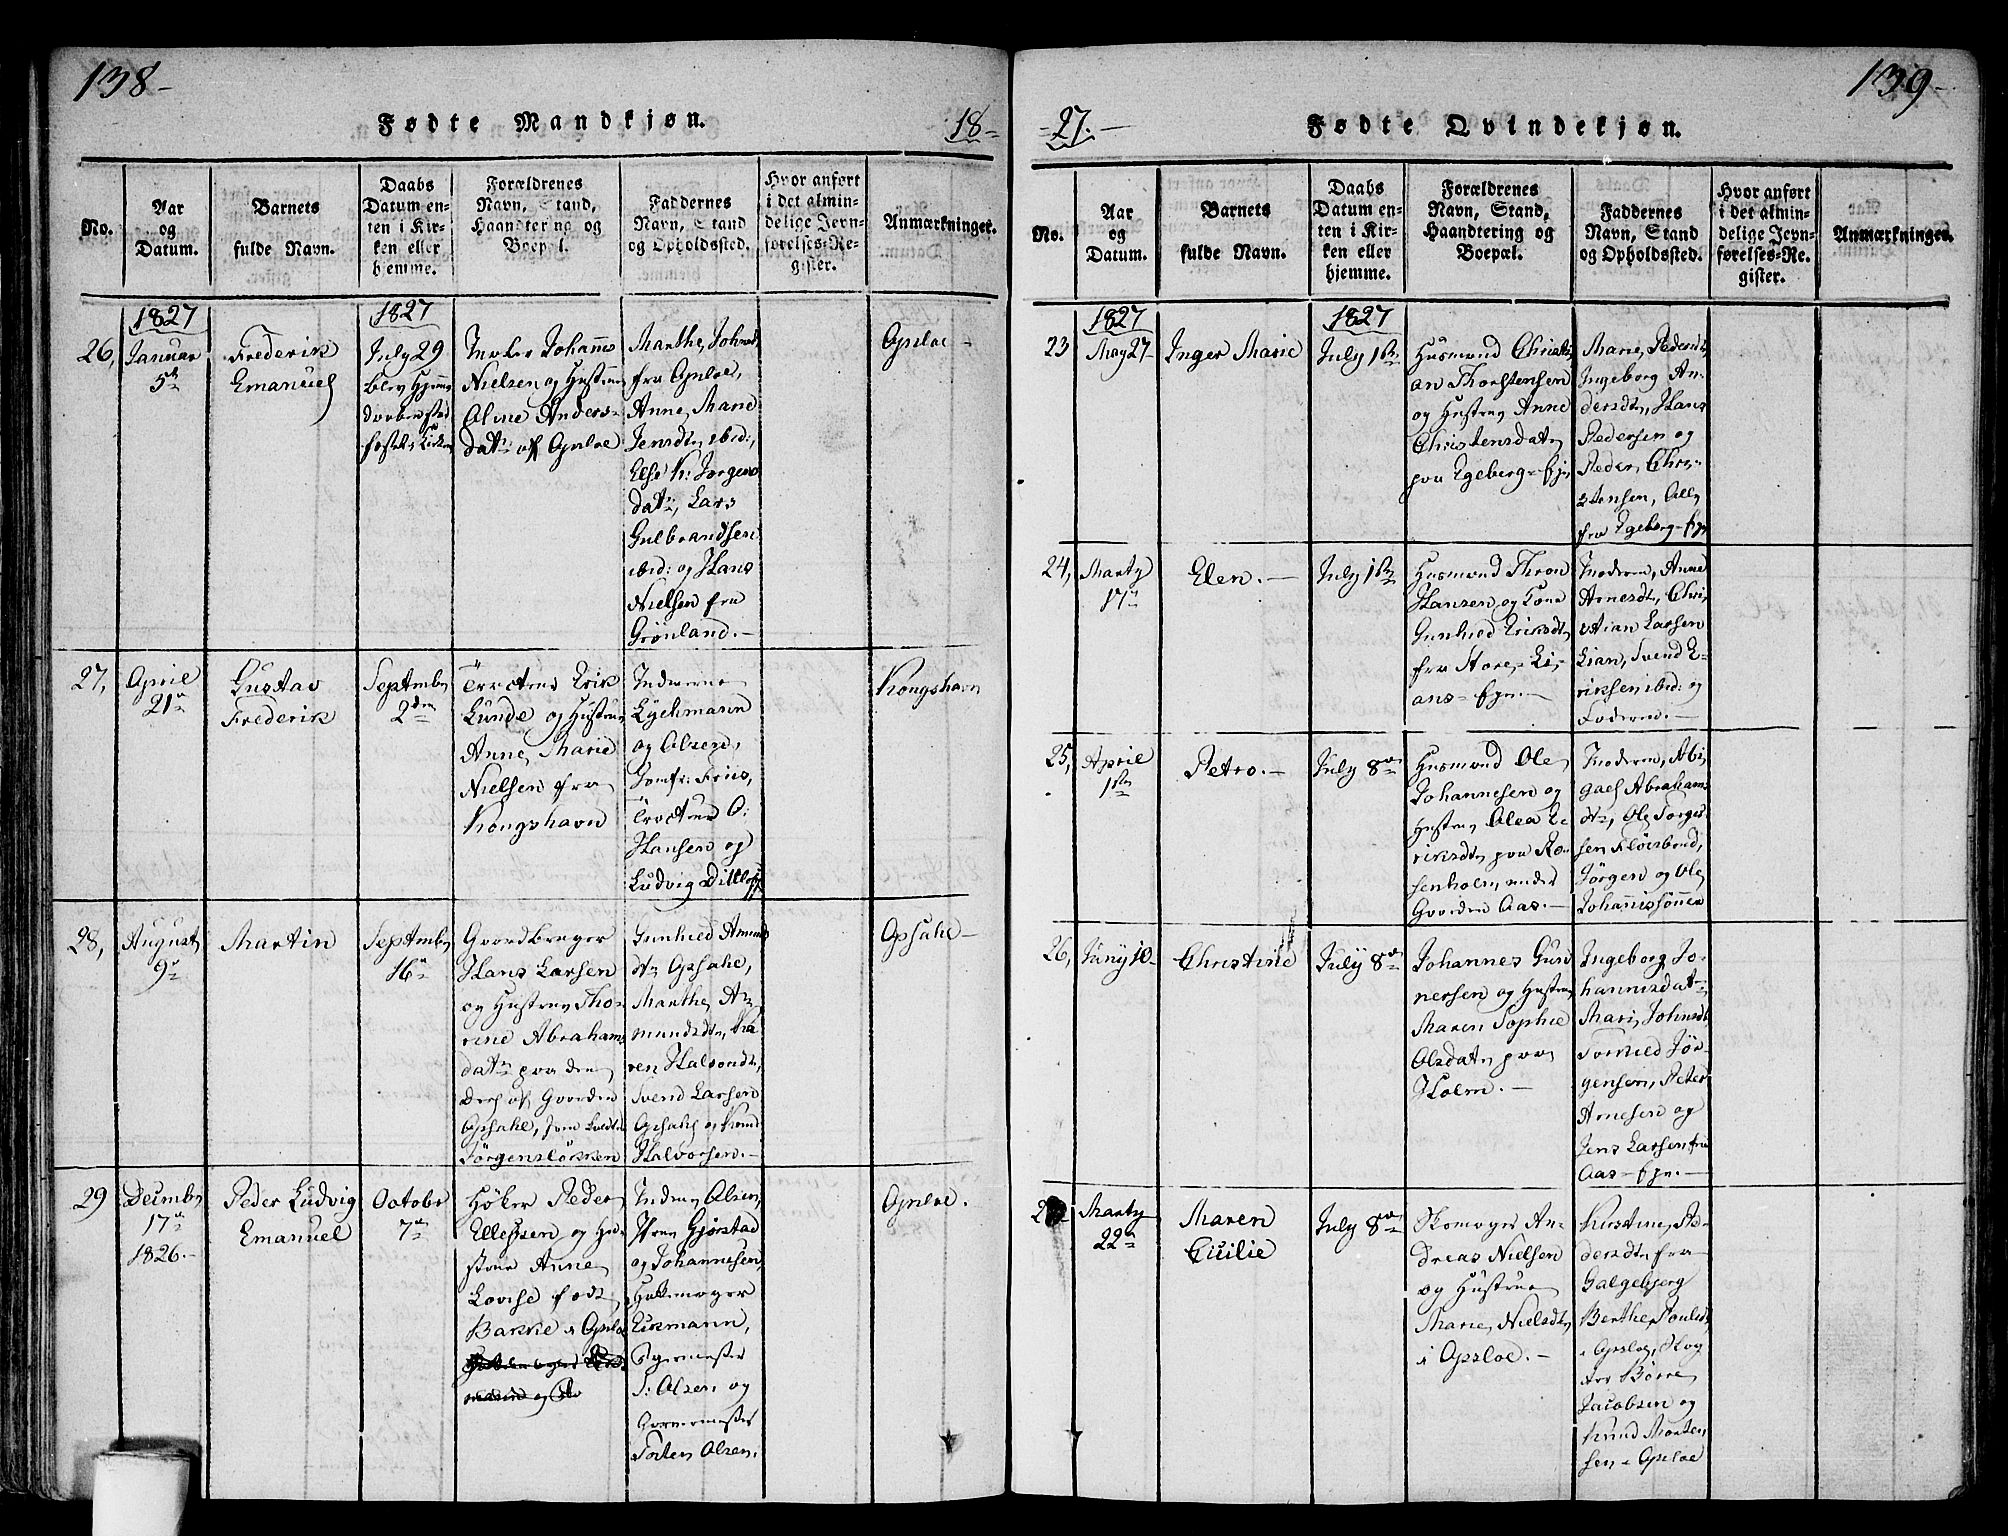 138-
Fødte Mandkjøn.
18-
No.
Aar
og
Datum.
Barnets
fulde Navn.
Daabs
Datum en-
ten i Kir-
ken eller
hjemme.
Forældrenes
Navn, Stand,
Haandtering og
Boepæl.
Faddernes
Navn, Stand
og Opholdssted.
Hvor anført
i det almin-
delige Jevn-
førelses-Re-
gister.
Anmærkninger.
26,
1827
Januar
5te
Frederik
Emanuel
1827
July 29
blev hjemme
Johannes
Nielsen og Hustrue
Oline Anders-
datr af Opsloe
Marthe, Johnsd
fra Opsloe,
Anne, Marie
Jensdtr ibid:,
Else K: Jørgens
datr, Lars
Gulbrandsen
ibid: og Hans
Nielsen fra
Grønland.-
Opsloe -
27,
April
21
Gustav
Frederik
Septembr
2den
Erik
Lunde og Hustrue
Anne, Marie
Nielsen fra
Kongshavn
Lychmann
og Olsen,
Jomfr: Friis,
O:
Hansen og
Ludvig Ditlof
Kongshavn
28,
August
9
Martin
Septembr
16
Gaardbruger
Hans Larsen
og Hustrue Tho-
rine Abrahams
datr paa den
Deel af Gaarden
Opsahl, som kaldes
Jørgensløkken
Gunhild Amund
dtr Opsahl,
Marthe, A-
mundsdtr, Ka
ren Halvorsdtr,
Svend Larsen
Opsahl og Knud
Halvorsen.-
Opsahl-
29
Decembr
17
1826.-
Peder Ludvig
Emanuel
October
7
Høker Peder
Ellefsen og Hu-
strue Anne
Lovise født
Bakke i Opsloe
Olsen,
Gjørstad
og Johannesen,
Hattemager
Eikmann,
S: Olsen og
Torsten Olsen.
Opsloe.
139-
27.-
Fødte Qvindekjøn.
No.
Aar
og
Datum.
Barnets
fulde Navn.
Daabs
Datum en-
ten i Kir-
ken eller
hjemme.
Forældrenes
Navn, Stand,
Haandtering og
Boepæl.
Faddernes
Navn, Stand
og Opholdssted.
Hvor anført
i det almin-
delige Jevn-
førelses-Re-
gister.
Anmærkninger.
23
1827
May 27-
Inger Marie
1827
July 1ste
Husmand Christi
an Thorstensen
og Hustrue Anne
Christensdatr
paa Egeberg-Ejer
Marie, Pedersdtr,
Ingeborg An-
dersdtr, Hans
Pedersen og
Peder, Chri-
stensen, Alle
fra Egeberg-Ejer
24,
Marty
17
Elen.-
July 1ste
Husmand Thron
Hansen og Kone
Gunhild Eriksdtr
fra Store-Li-
ans-Ejer.-
Moderen, Anne
Arnesdtr, Chri
stian Larsen
Lian, Svend E-
riksen ibid: og
Faderen.-
25,
April
1ste
Petro.-
July 8de
Husmand Ole
Johannesen og
Hustrue Olea E
riksdtr paa Ro-
senholm, under
Gaarden Aas.-
Moderen, Abi
gael Abrahams
dtr, Ole, Torges
sen Fløisbond,
Jørgen og Ole
Johannissønner
26,
Juny 10-
Christine
July 8de
Johannes Gun
nersen og Hustrue
Maren Sophie
Olsdatr paa
Holm.-
Ingeborg Jo-
hannisdatr
Mari, Johnsdtr
Torkild Jør-
gensen, Peter
Arnesen og
Jens Larsen fra
Aas-Ejer.-
Marty
22
Maren
Cicilie
July 8de
Skomager An-
dreas Nielsen
og Hustrue
Marie, Nielsdtr
i Opsloe.-
Kirstine, Pe-
dersdtr fra
Galgebjerg
Berthe, Poulsdtr
i Opsloe, Skog
Børre
Jacobsen og
Knud Morten
sen i Opsloe